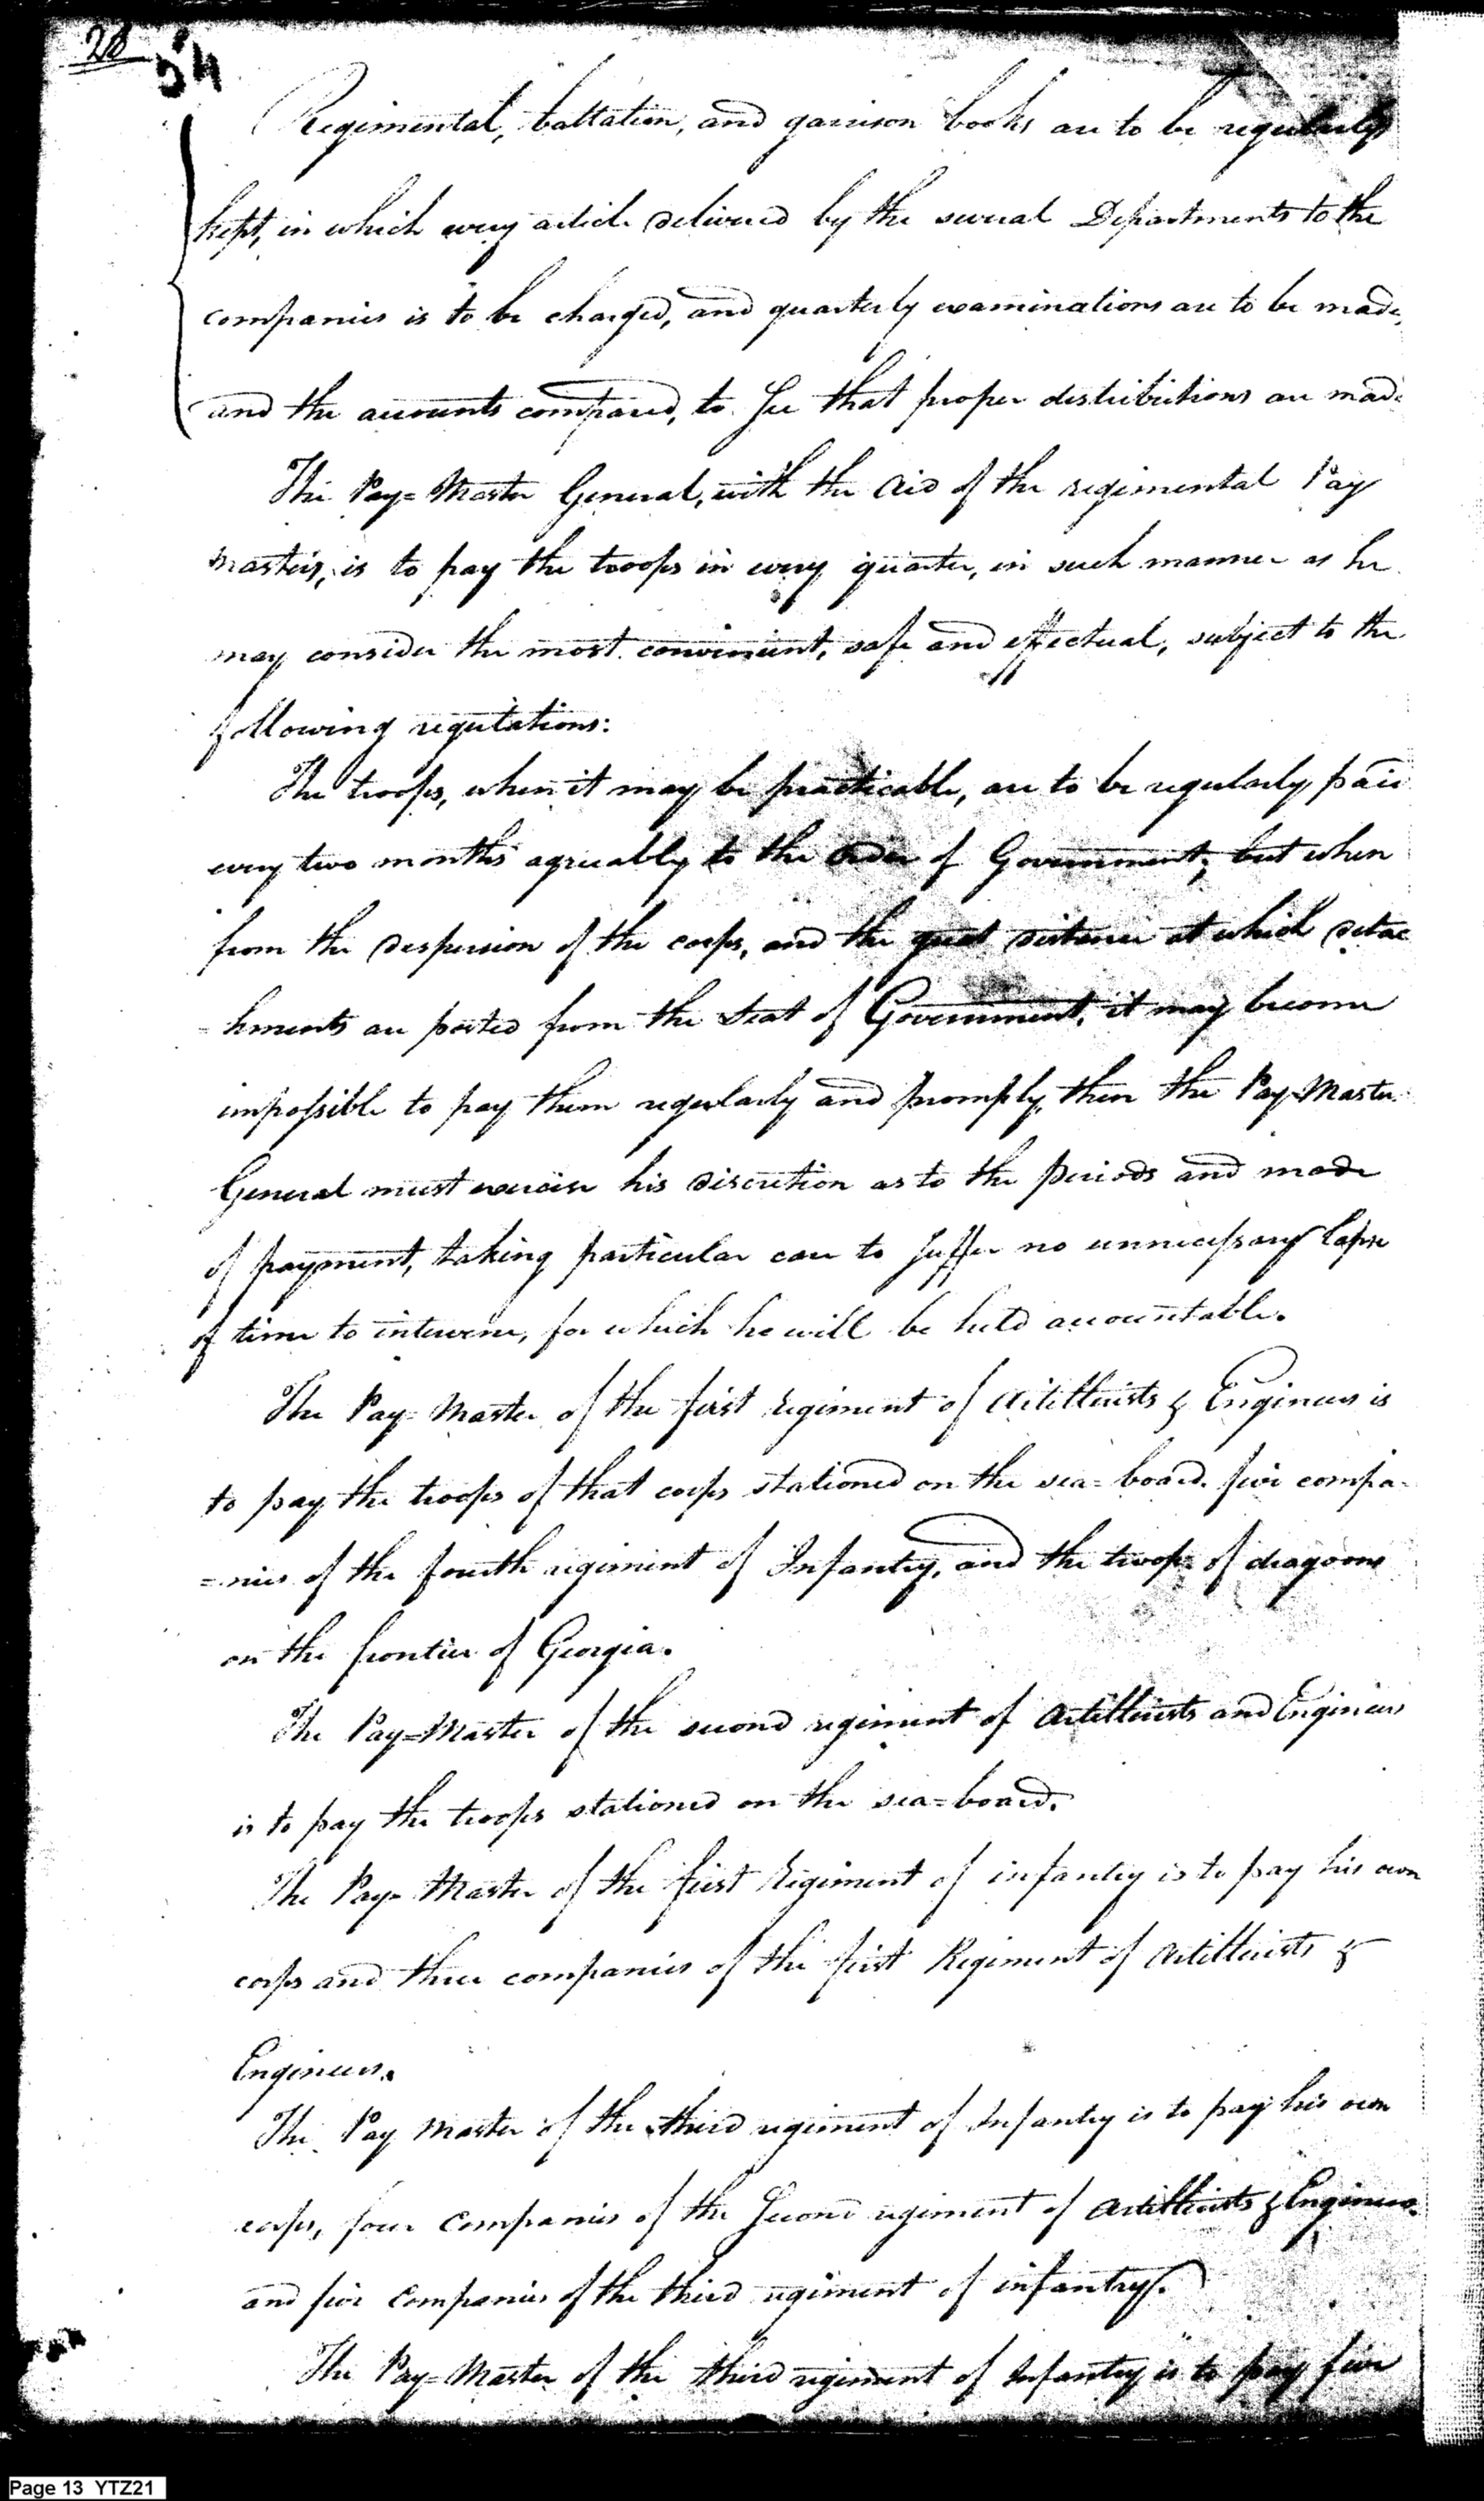 28
54
Regimental, battalion, and garrison books are to be regularly
kept, in which every article delivered by the several Departments to the
companies is to be charged, and quarterly examinations are to be made,
and the accounts compared, to See that proper distributions are made
The Pay=Master General, with the Aid of the regimental Pay
masters, is to pay the troops in every quarter, in such manner as he
may consider the most convenient, safe and effectual, subject to the
following regulations:
The troops, when it may be practicable, are to be regularly paid
every two months agreeably to the Order of Government; but when
from the dispersion of the corps, and the great distance at which detac
=hments are posted from the Seat of Government, it may become
impossible to pay them regularly and promply, then the Pay-Master
General must exercise his discretion as to the periods and mode
of payment, taking particular care to Suffer no unnecessary lapse
of time to intervene, for which he will be held accountable.
The Pay-Master of the first regiment of Artillerists & Engineers is
to pay the troops of that corps stationed on the sea=board. five compa-
=nies of the fourth regiment of Infantry, and the troops of dragoons
on the frontier of Georgia.
The Pay=Master of the second regiment of Artillerists and Engineers
is to pay the troops stationed on the sea=board.
The Pay-Master of the first Regiment of infantry is to pay his own
corps and three companies of the first Regiment of Artillerists &
Engineers.
The Pay Master of the third regiment of Infantry is to pay his own
corps, four Companies of the Second regiment of Artillerists & Engineers.
and five Companies of the third regiment of infantry.
The Pay=Master of the third regiment of Infantry is to pay five
Page 13 YTZ21